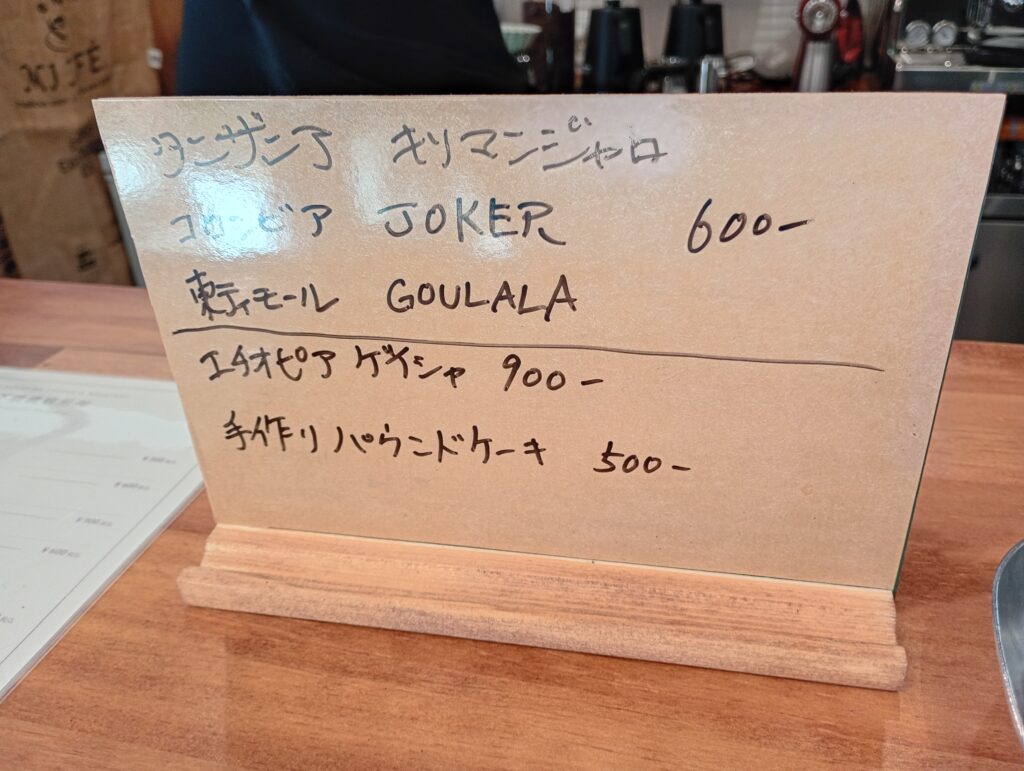 タンザニア キリマンジャロ
コロンビア JOKER 600-
東ティモール GOULALA
エチオピア ゲイシャ 900-
手作りパウンドケーキ 500-